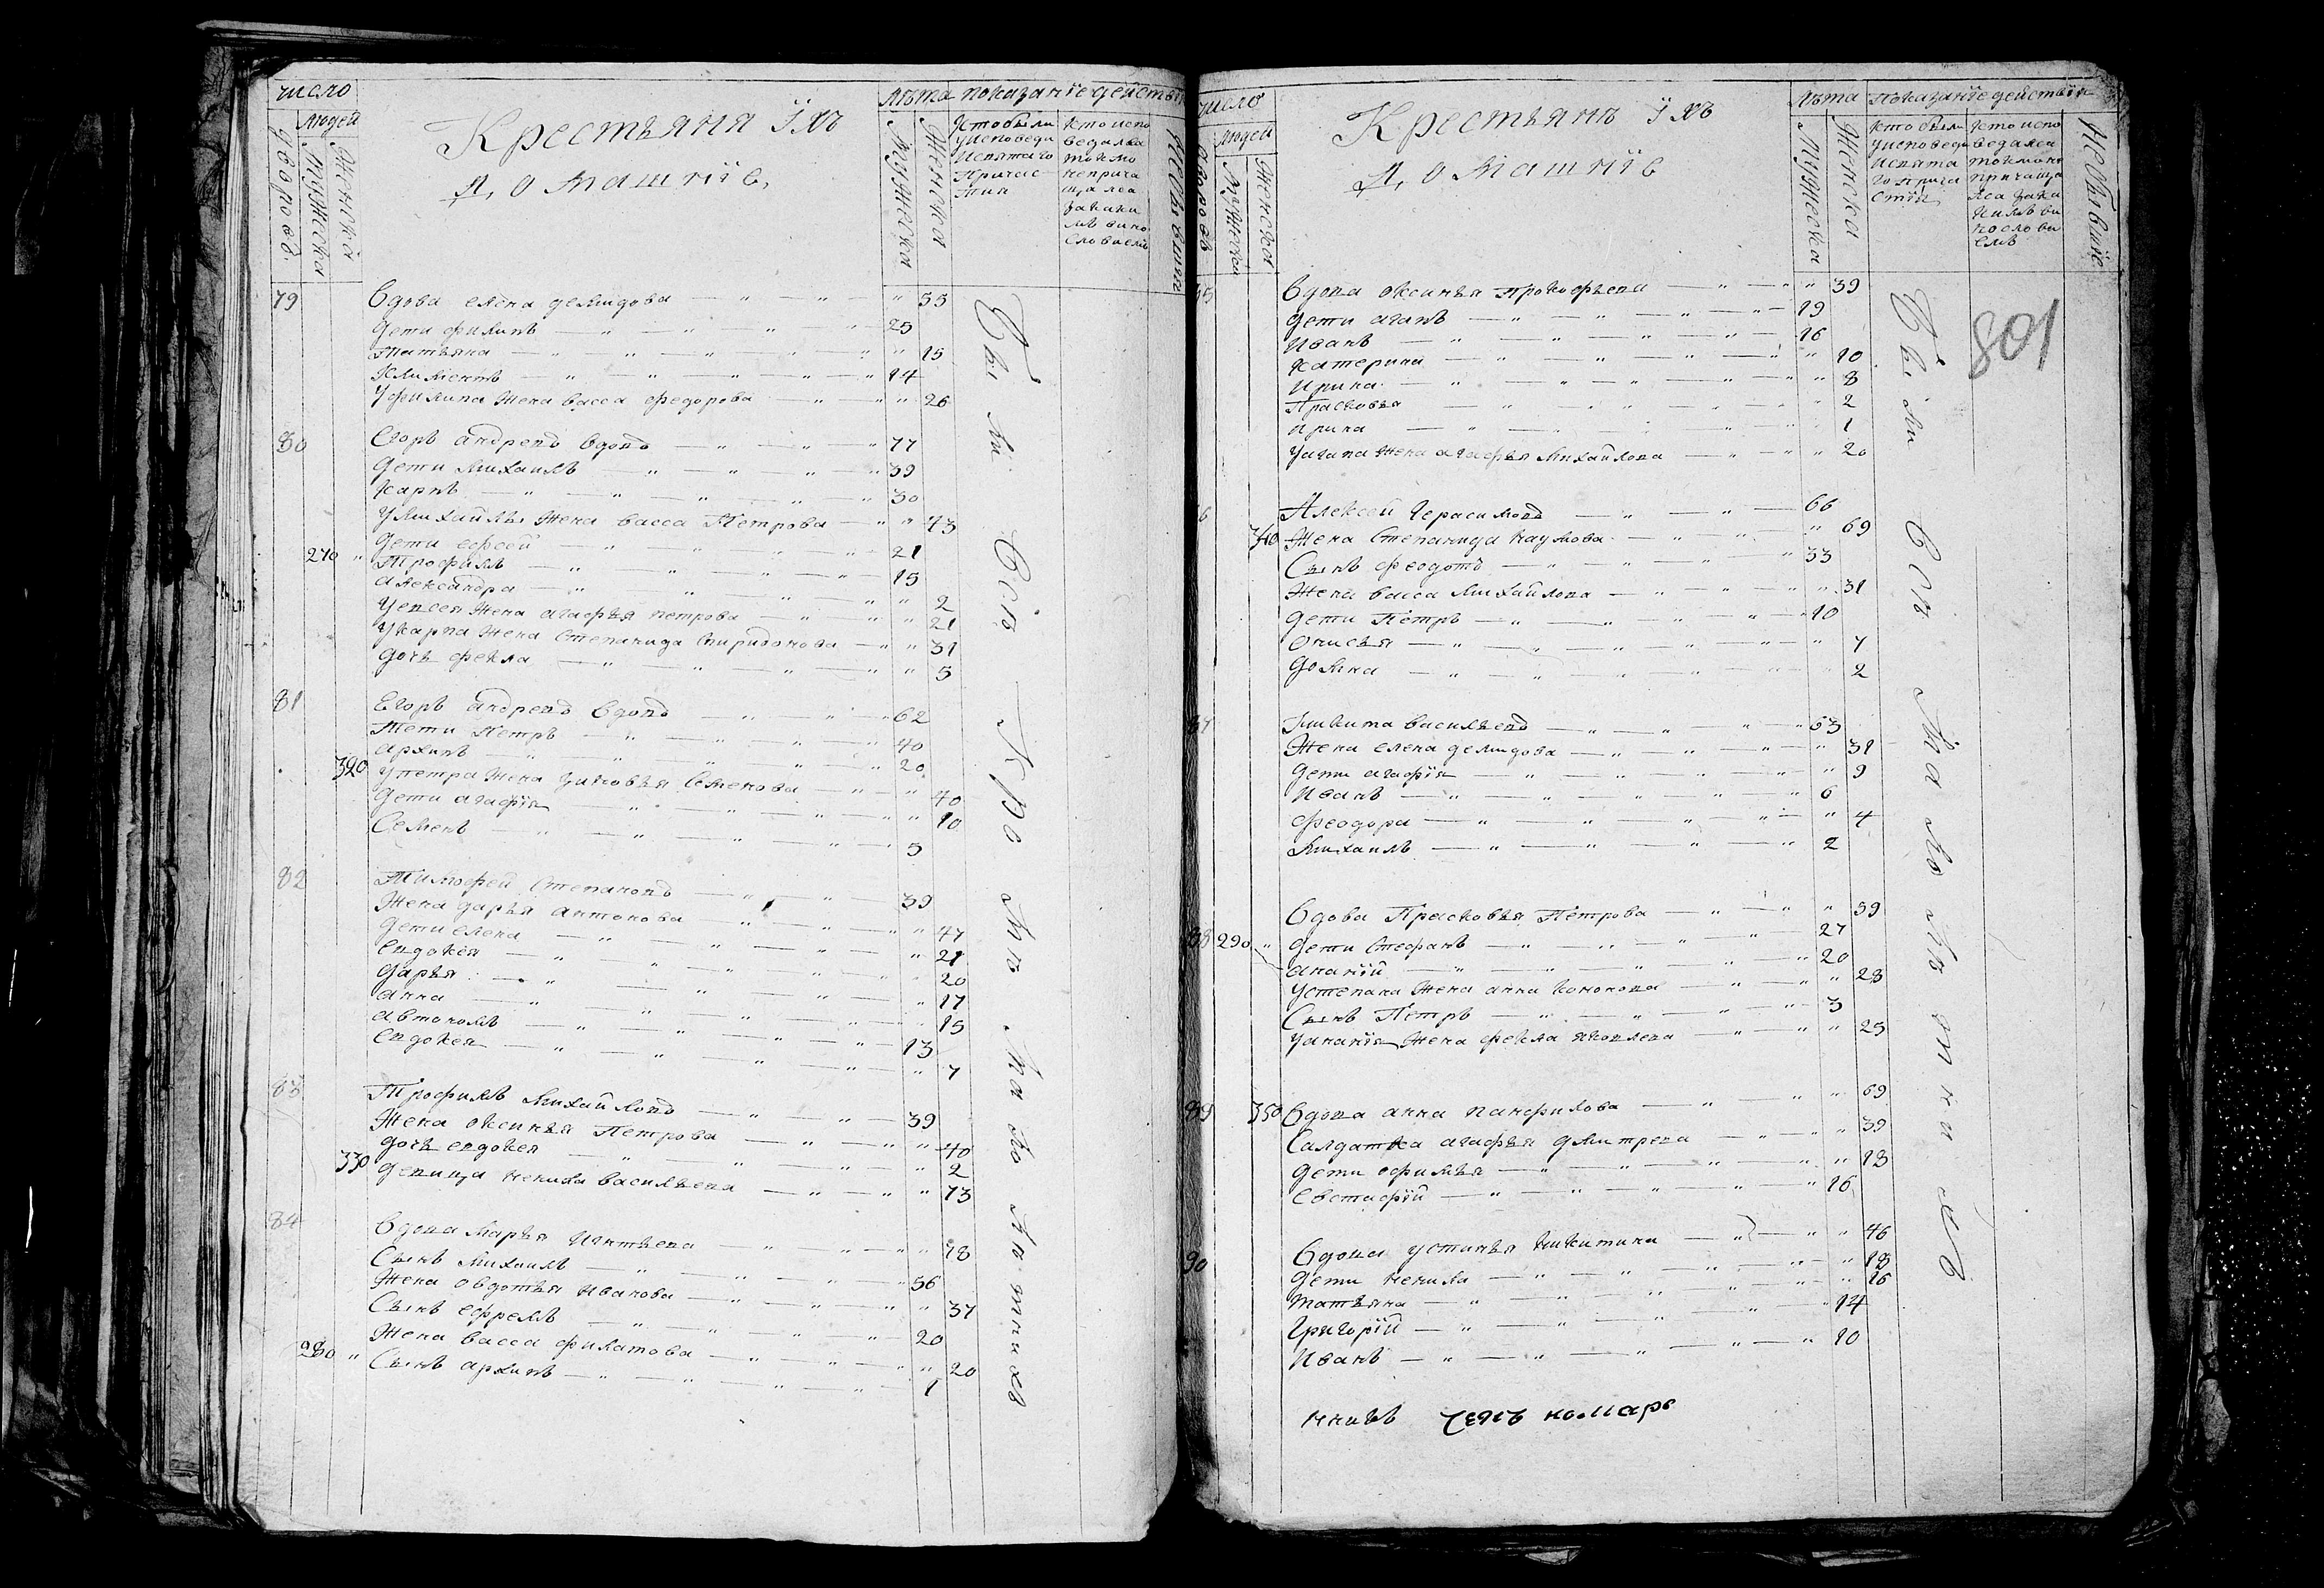 число
людей
дворовъ
Мужеска
Женска
Крестьяня ихъ
Домашніе,
лѣта показаніе действ
Мужеска
Женска
Кто были
у исповеди
и святаго
Причас
тия
кто испо
ведался
токмо
неприча
щался
за каки
мъ вино
словиемъ
79 вдова елена демидова " 55
дети филипъ 25
татьяна " 15
Климентъ 14
у филипа жена васса федорова " 26
80 Егоръ андреевъ вдовъ 77
дети михаилъ 39
карпъ 30
у михайлы жена васса Петрова " 43
дети евсей 21
270 " Трофимъ 15
александра " 2
у евсея жена агафья петрова " 21
у карпа жена степанида спиридонова " 31
дочь фекла " 5
81 Егоръ андреевъ вдовъ 62
дети Петръ 40
архипъ 20
320 у петра жена зиновья семенова " 40
дети агафія " 10
Семенъ 5
82 Тимофей степановъ 39
жена дарья антонова " 47
дети елена " 21
евдокея " 20
дарья " 17
анна " 15
автономъ 13
евдокея " 7
83 Трофимъ михайловъ 39
жена оксинья Петрова " 40
дочь евдокея " 2
330 девица ненила васильева " 73
84 вдова марья игнтьева " 78
Сынъ михаилъ 56
жена овдотья иванова " 37
Сынъ ефремъ 20
жена васса филатова " 20
280 " Сынъ архипъ 1
Были Всѣ Кромѣ Малолетнихъ
число
людей
Мужеска
Женска
Крестьянъ ихъ
Домашніе
лѣта показаніе действія
Мужеска
Женска
кто были
у исповеди
и свята
го прича
стія
кто испо
ведался
токмоне
причаща
лся зака
кимъ ви
нослови
емъ
Небывшіе
801
85 вдова оксинья Прокофьева " 39
дети агапъ 19
иванъ 16
катерина " 10
ирина " 8
Прасковья " 2
ирина " 1
у агапа жена агафья михайлова " 20
86 Алексей герасимовъ 66
340 жена степанида наумова " 69
Сынъ феодотъ 33
жена васса михайлова " 31
дети Петръ 10
онисья " 7
домна " 2
87 никита васильевъ 53
жена елена демидова " 31
дети агафія " 9
иванъ 6
феодора " 4
михаилъ 2
88 вдова Прасковья Петрова " 59
290 " дети стефанъ 27
ананій 20
у степана жена анна кононова " 28
Сынъ Петръ 3
у ананія жена фекла яковлева " 25
89 350 вдова анна панфилова " 69
Салдатка агафья дмитрева " 39
дети офимья " 18
евстафій 16
90 вдова устинья никитина " 46
дети ненила " 18
татьяна " 16
григорій 14
иванъ 10
Были Всѣ Малолѣтнихъ